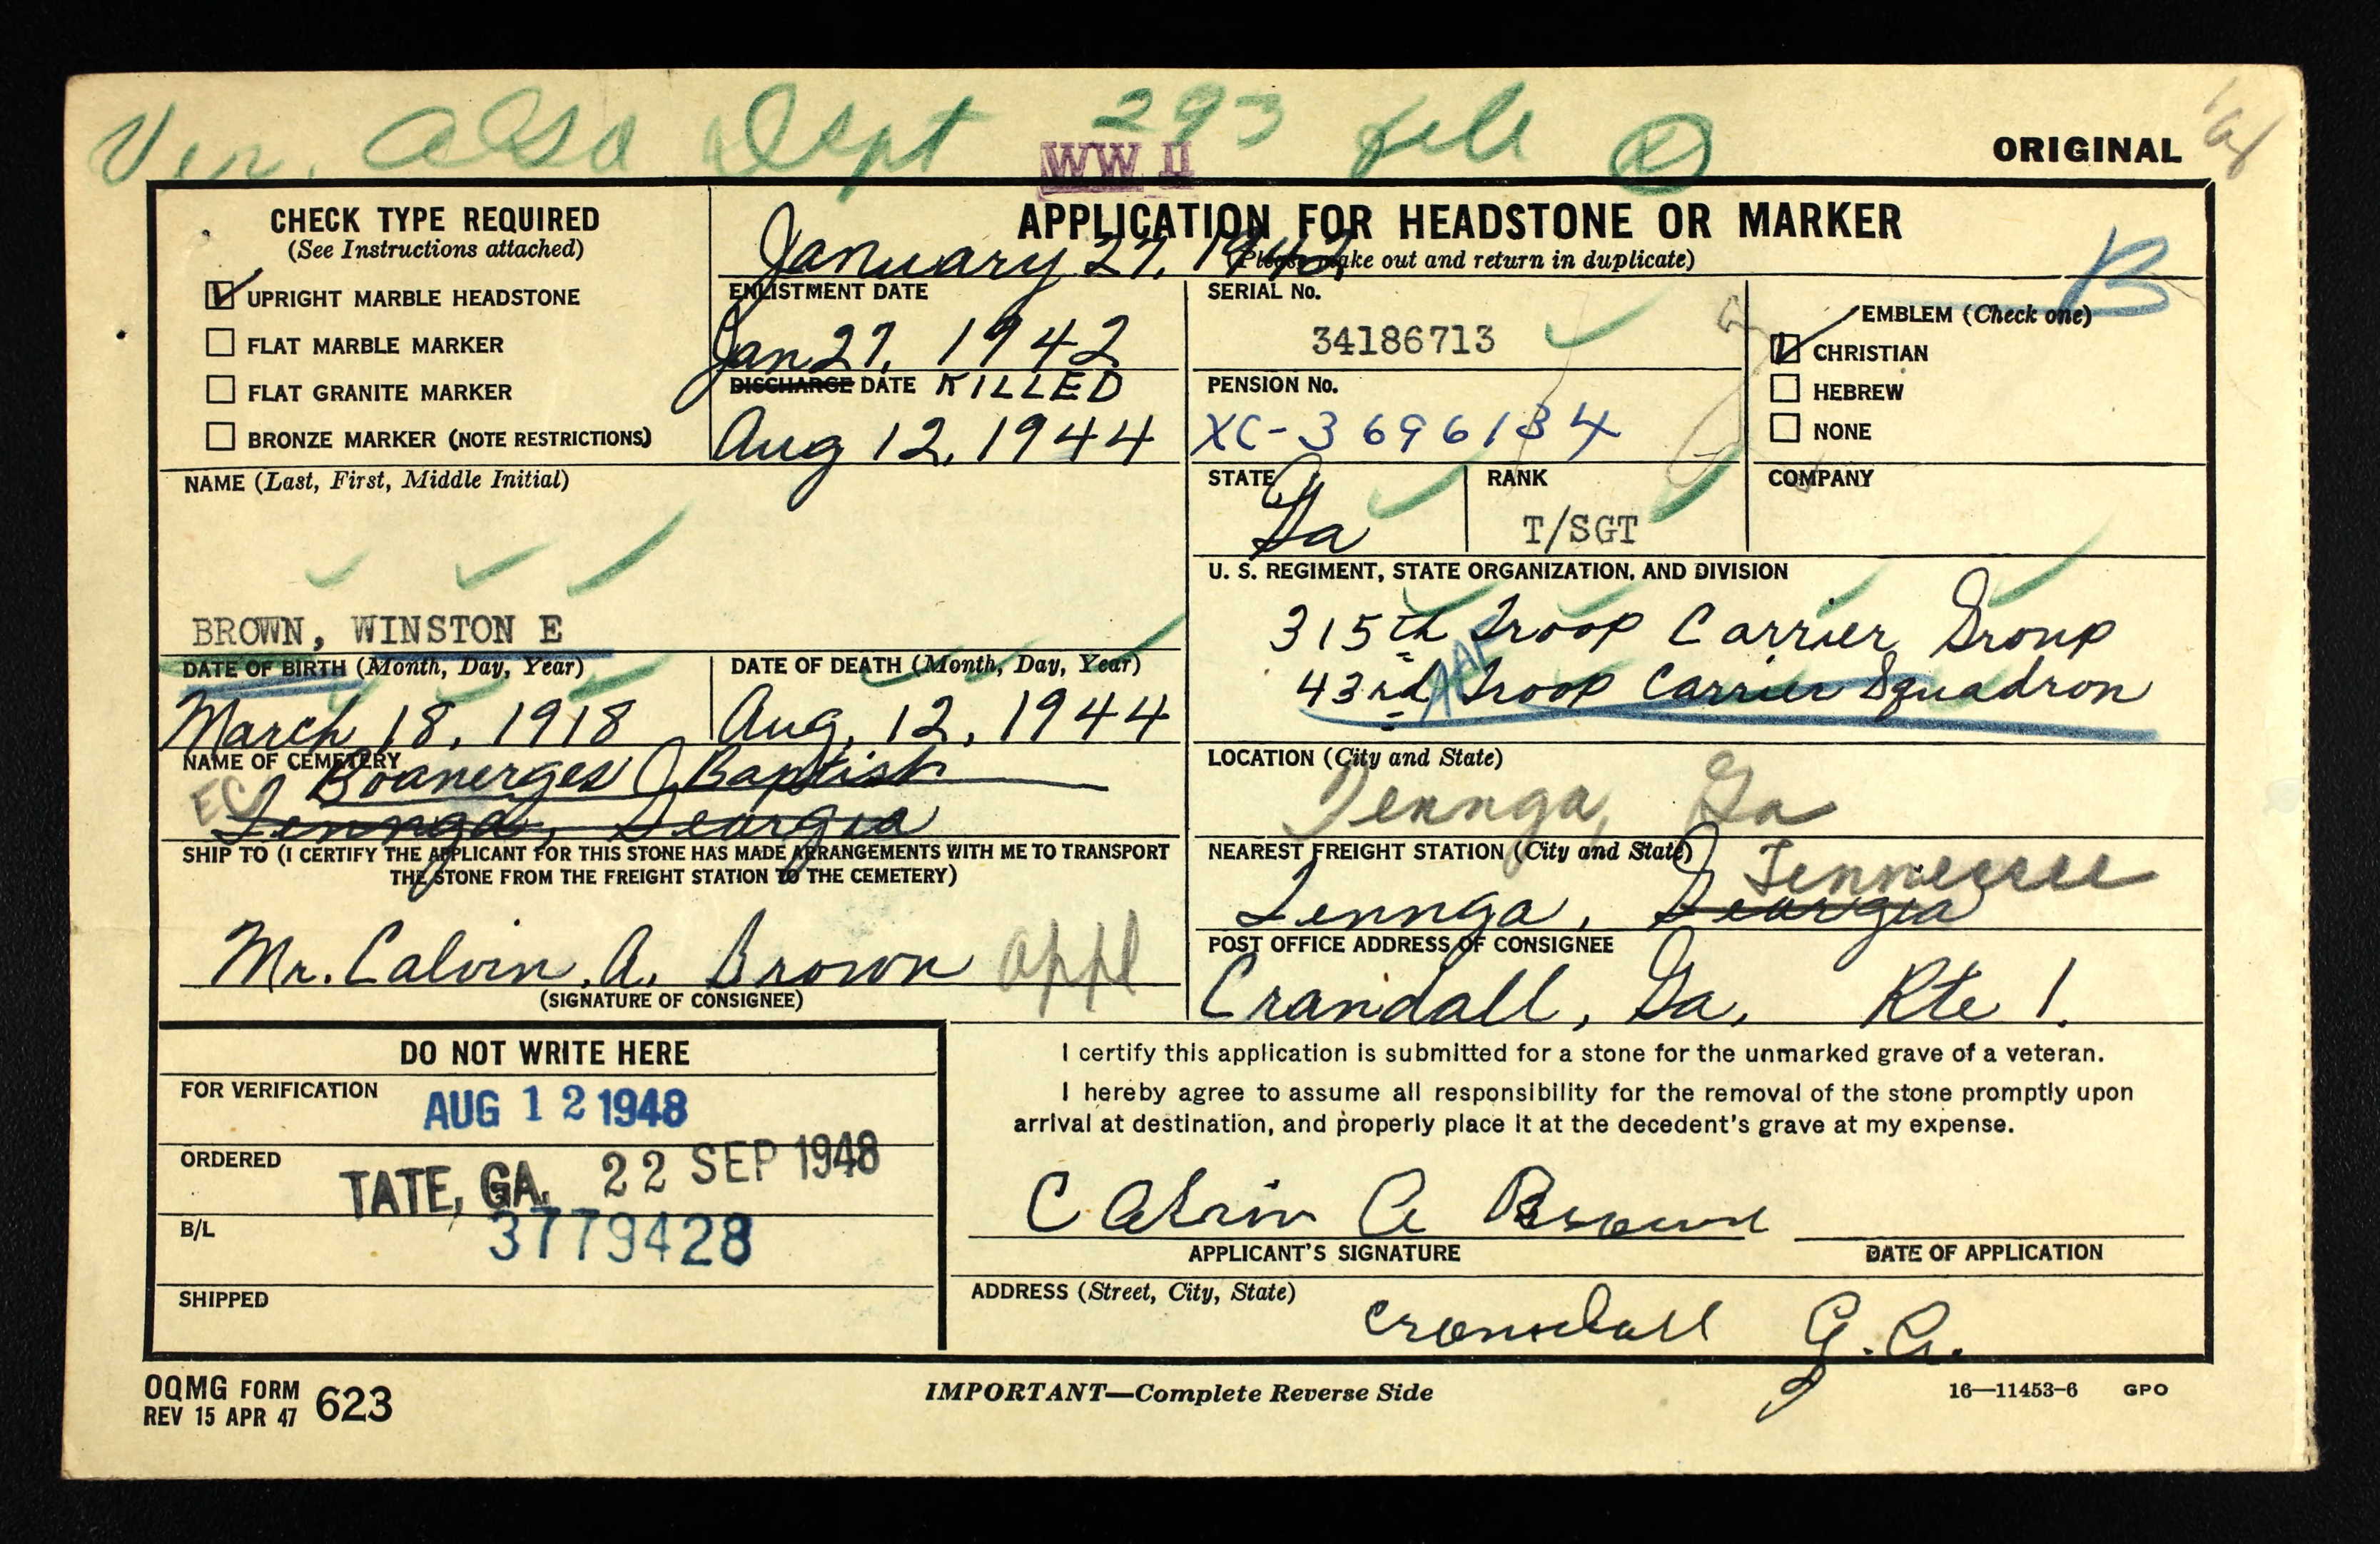 Ver. Also Dept 293 file
WW II
ORIGINAL
CHECK TYPE REQUIRED
(See Instructions attached)
UPRIGHT MARBLE HEADSTONE
FLAT MARBLE MARKER
FLAT GRANITE MARKER
BRONZE MARKER (NOTE RESTRICTIONS)
APPLICATION FOR HEADSTONE OR MARKER
(Please make out and return in duplicate)
January 27, 1942
ENLISTMENT DATE
Jan 27, 1942
DISCHARGE DATE KILLED
Aug 12, 1944
SERIAL No.
34186713
PENSION No.
XC-3696134
B
EMBLEM (Check one)
CHRISTIAN
HEBREW
NONE
NAME (Last, First, Middle Initial)
BROWN, WINSTON E
STATE
Ga
RANK
T/SGT
COMPANY
U. S. REGIMENT, STATE ORGANIZATION, AND DIVISION
315th Troop Carrier Group
AAF
43rd Troop Carrier Squadron
DATE OF BIRTH (Month, Day, Year)
March 18, 1918
DATE OF DEATH (Month, Day, Year)
Aug, 12, 1944
NAME OF CEMETERY
Boanerges Baptist
EC
Tennga, Georgia
LOCATION (City and State)
Tennga, Ga
SHIP TO (I CERTIFY THE APPLICANT FOR THIS STONE HAS MADE ARRANGEMENTS WITH ME TO TRANSPORT
THE STONE FROM THE FREIGHT STATION TO THE CEMETERY)
Mr. Calvin. A. Brown appl
(SIGNATURE OF CONSIGNEE)
NEAREST FREIGHT STATION (City and State)
Tennessee
Tennga, Georgia
POST OFFICE ADDRESS OF CONSIGNEE
Crandall, Ga, Rte 1.
DO NOT WRITE HERE
FOR VERIFICATION
AUG 12 1948
ORDERED
TATE, GA. 22 SEP 1948
B/L
3779428
SHIPPED
I certify this application is submitted for a stone for the unmarked grave of a veteran.
I hereby agree to assume all responsibility for the removal of the stone promptly upon
arrival at destination, and properly place it at the decedent's grave at my expense.
Calvin A Brown
APPLICANT'S SIGNATURE
DATE OF APPLICATION
ADDRESS (Street, City, State)
Crandall G.A.
OQMG FORM 623
REV 15 APR 47
IMPORTANT—Complete Reverse Side
16—11453-6 GPO